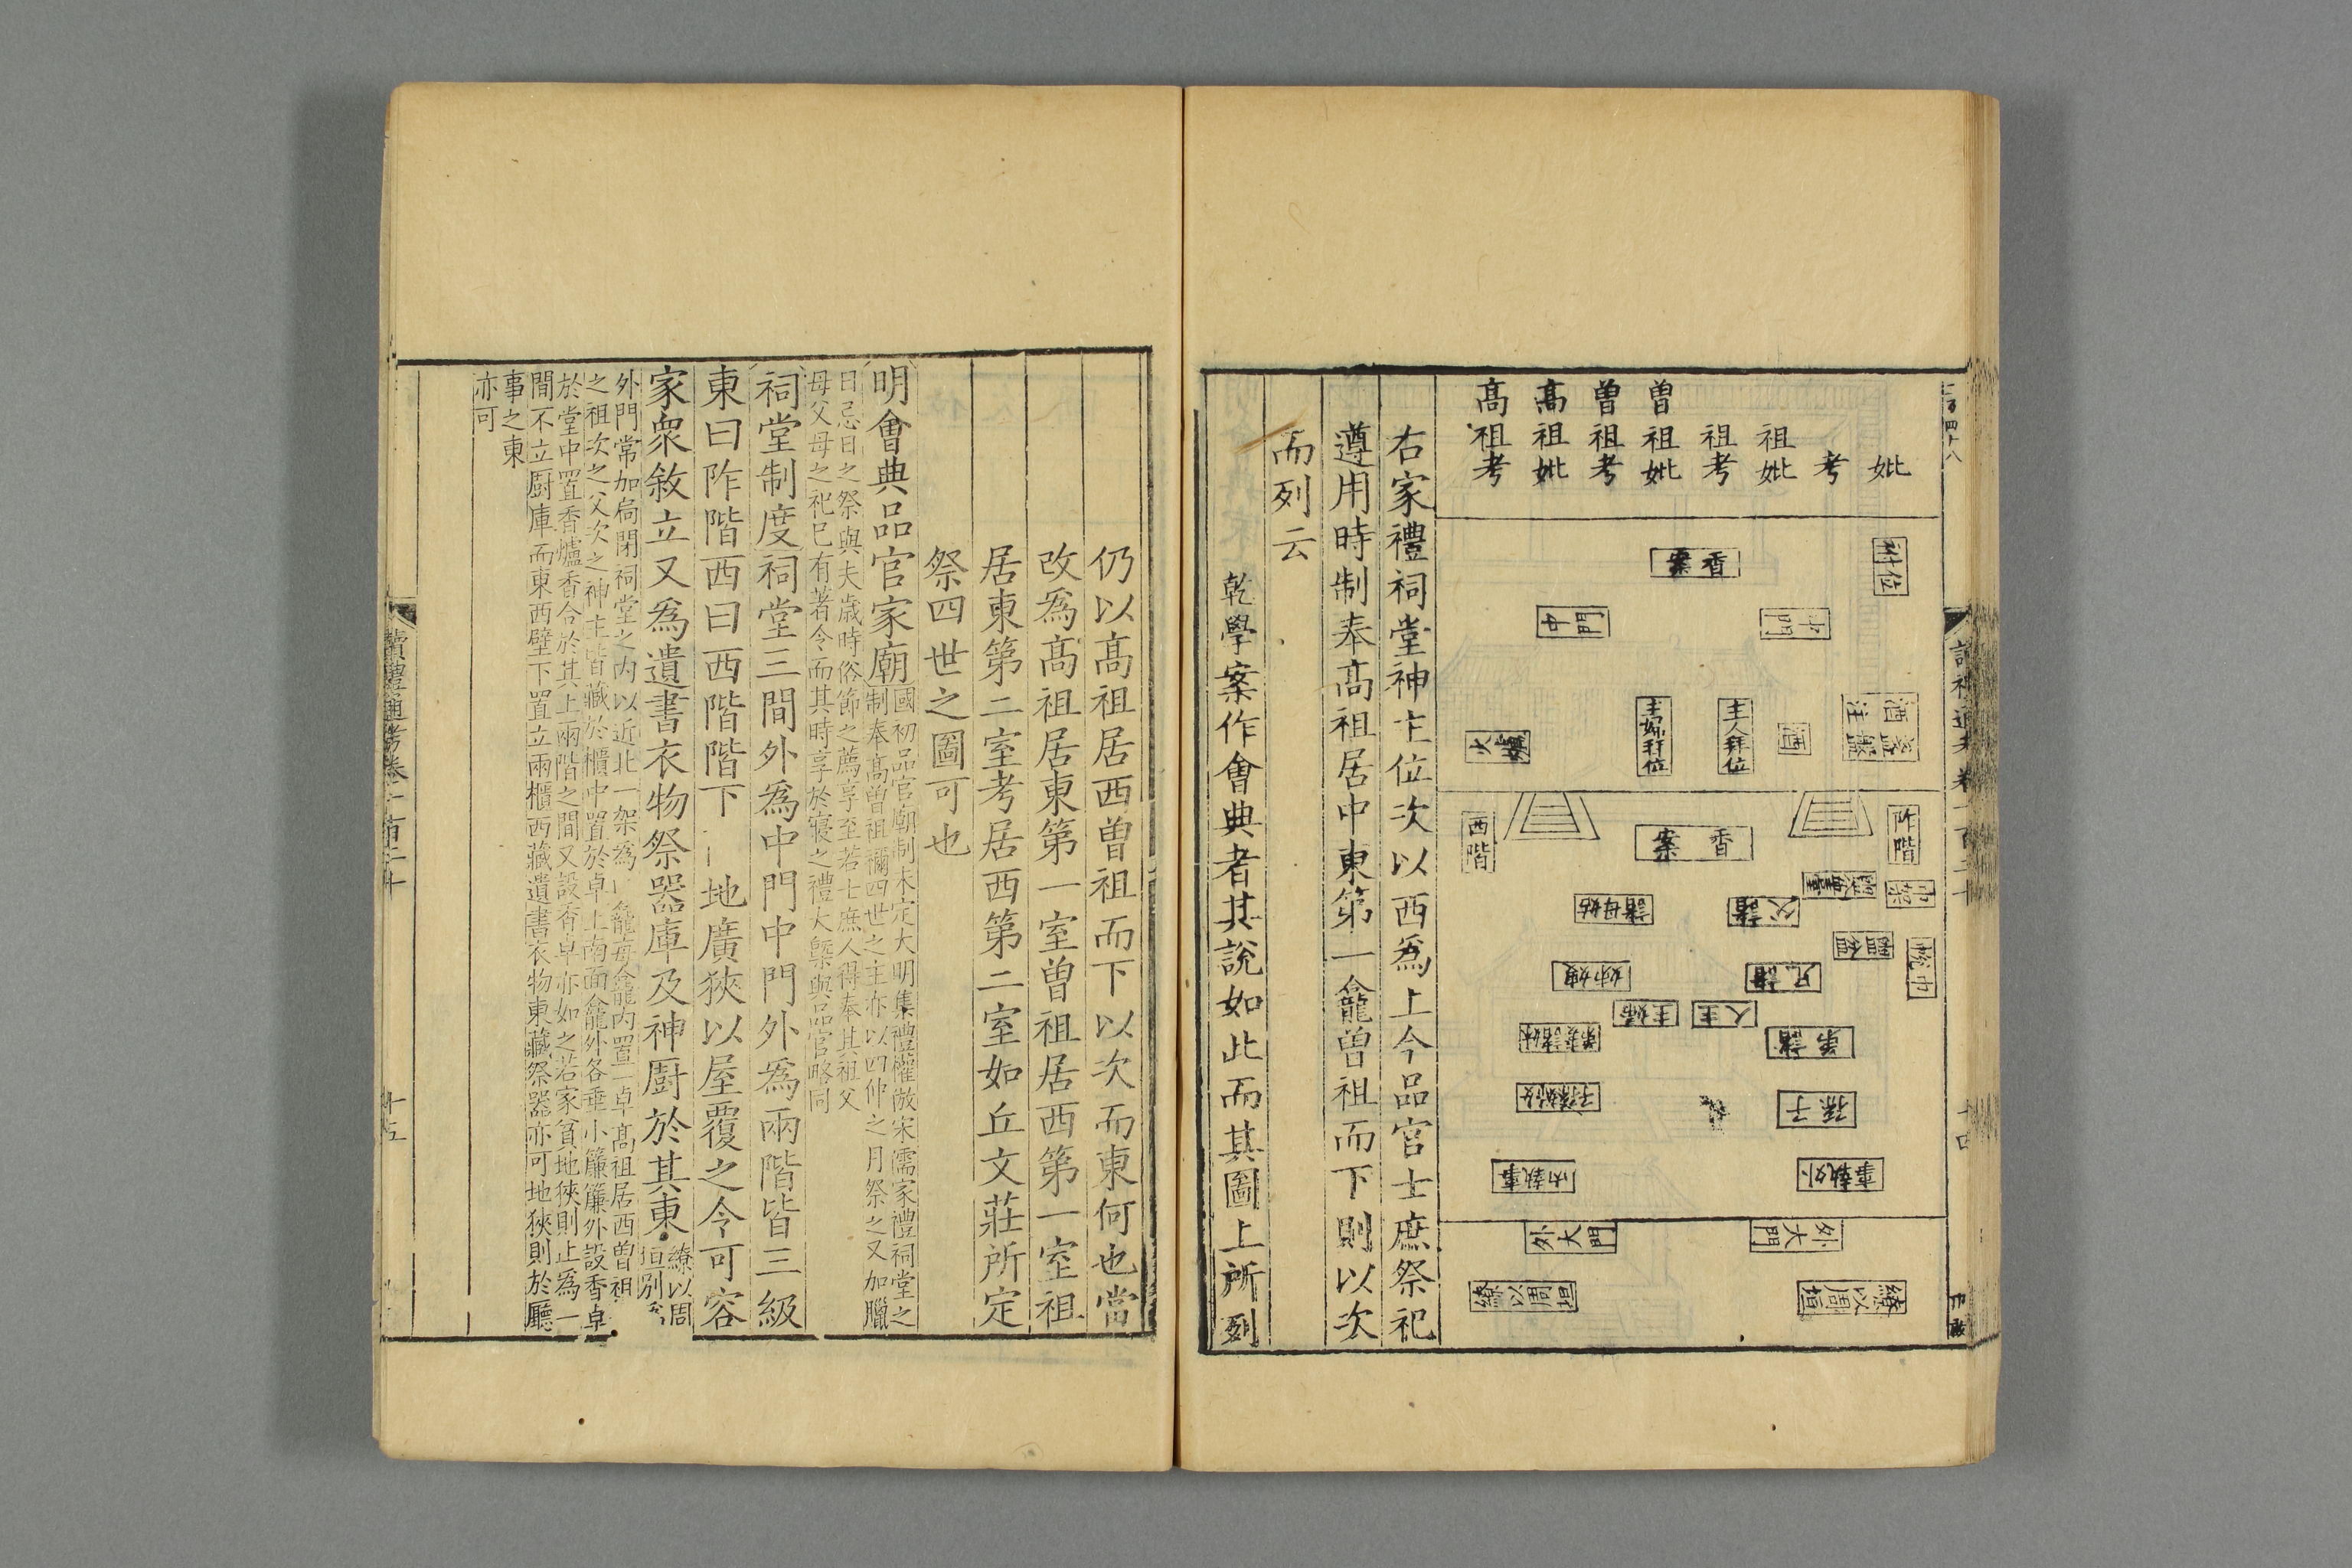 妣
考
祖妣
祖考
曽祖妣
曽祖考
髙祖妣
髙祖考
祔位
香案
中門
中門
酒注盞盤
酒
主人拜位
主婦拜位
火爐
阼階
西階
香案
諸父
諸母姑
諸兄
姊嫂
主人
主婦
諸弟
子孫
外執事
内執事
外大門
外大門
繚以周垣
繚以周垣
右家禮祠堂神主位次以西爲上今品官士庶祭祀
遵用時制奉髙祖居中東第一龕曽祖而下則以次
而列云
乾學案作會典者其說如此而其圖上所列
仍以髙祖居西曽祖而下以次而東何也當
改爲髙祖居東第一室曽祖居西第一室祖
居東第二室考居西第二室如丘文莊所定
祭四世之圖可也
明會典品官家廟國初品官廟制未定大明集禮權倣宋儒家禮祠堂之
制奉髙曽祖禰四世之主亦以四仲之月祭之又加臘
日忌日之祭與夫歲時俗節之薦享至若士庶人得奉其祖父
母父母之祀已有著令而其時享於寢之禮大槩與品官略同
祠堂制度祠堂三間外爲中門中門外爲兩階皆三級
東曰阼階西曰西階階下 地廣狹以屋覆之令可容
家衆敘立又爲遺書衣物祭器庫及神厨於其東繚以周
垣别
外門常加扃閉祠堂之内以近北一架爲 龕每龕内置一卓髙祖居西曽祖
之祖次之父次之神主皆藏於櫃中置於卓上南面龕外各垂小簾簾外設香卓
於堂中置香爐香合於其上兩階之間又設香卓亦如之若家貧地狹則止爲一
間不立厨庫而東西壁下置立兩櫃西藏遺書衣物東藏祭器亦可地狹則於廳
事之東
亦可
讀禮通考卷一百二十
十五